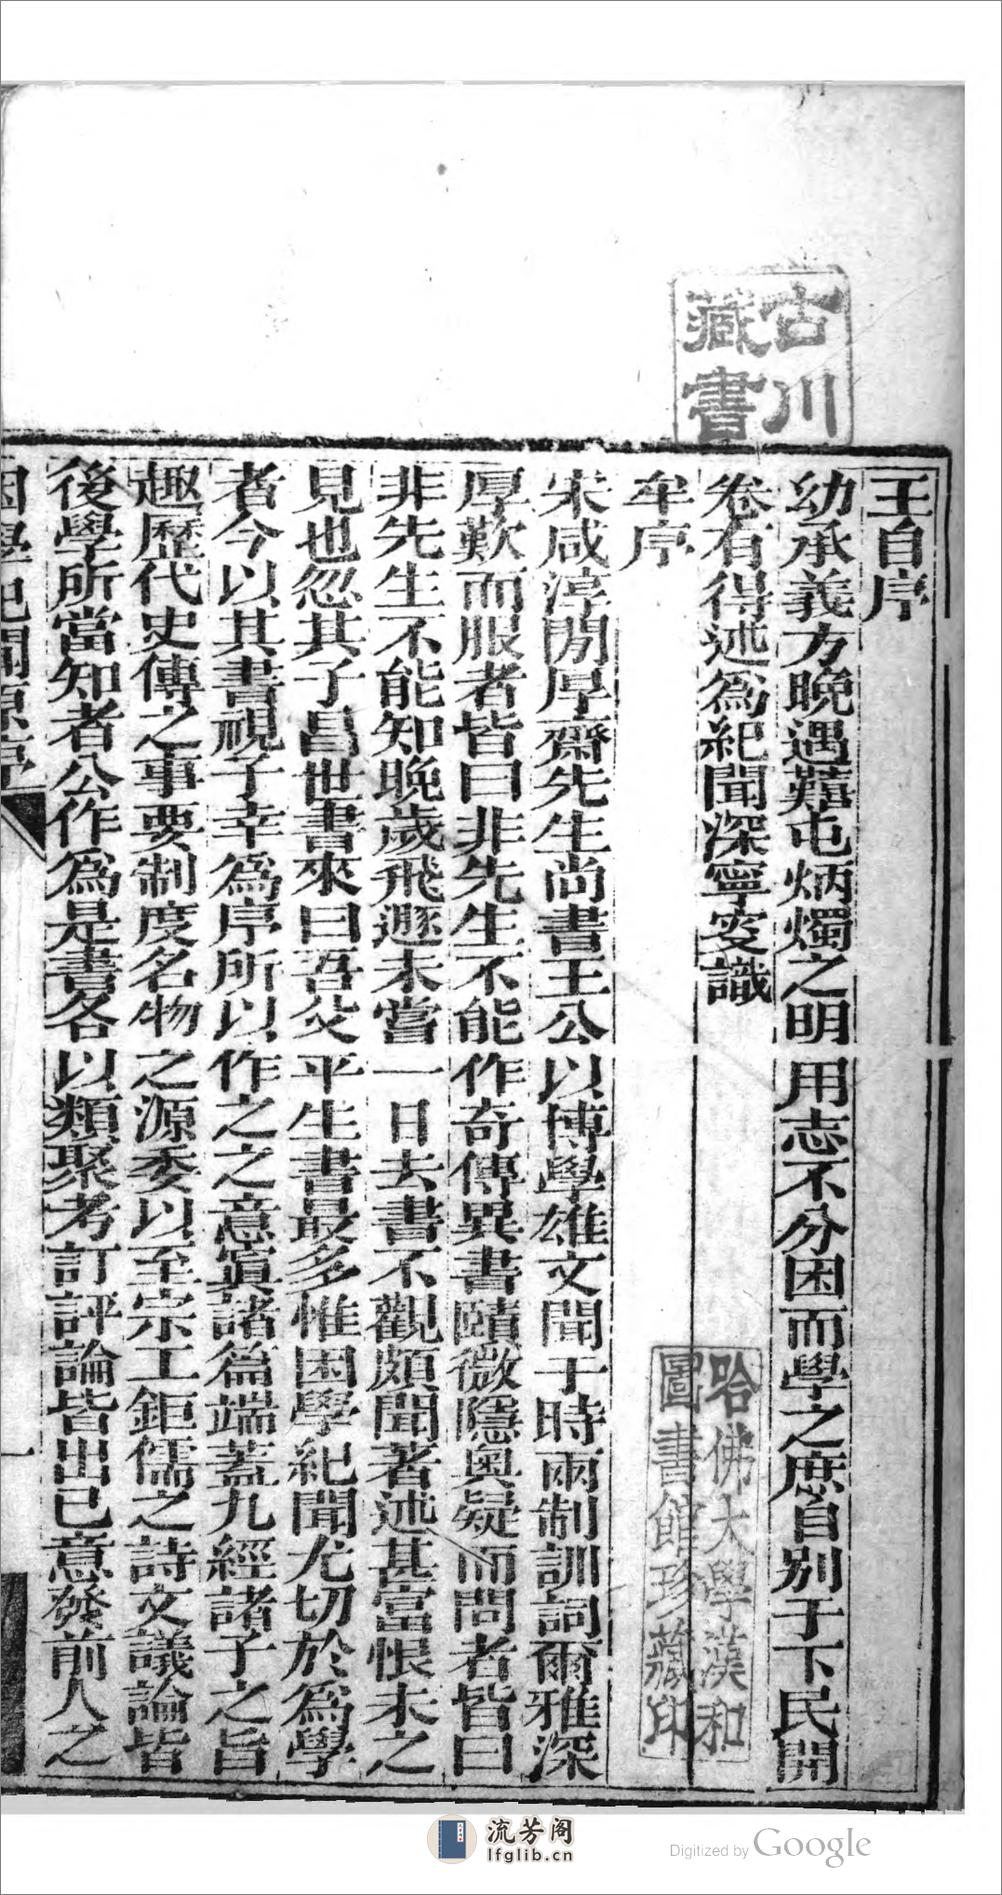 王自序
幼承義方晚遇艱屯炳燭之明用志不分困而學之庶自別于下民開
卷有得述爲紀聞深寧叟識
牟序
宋咸淳閒厚齋先生尚書王公以博學雄文聞于時兩制訓詞爾雅深
厚歎而服者皆曰非先生不能作奇傳異書賾微隱奥疑而問者皆曰
非先生不能知晚歲飛遯未嘗一日去書不觀頗聞著述甚富恨未之
見也忽其子昌世書來曰吾父平生書最多惟困學紀聞尤切於爲學
者今以其書視子幸爲序所以作之之意寘諸篇端蓋九經諸子之旨
趣歷代史傳之事要制度名物之源委以至宗工鉅儒之詩文議論皆
後學所當知者公作爲是書各以類聚考訂評論皆出己意發前人之
困學紀聞原序
一
古川
藏書
哈佛大學漢和
圖書館珍藏印
流芳阁
lfglib.cn
Digitized by Google